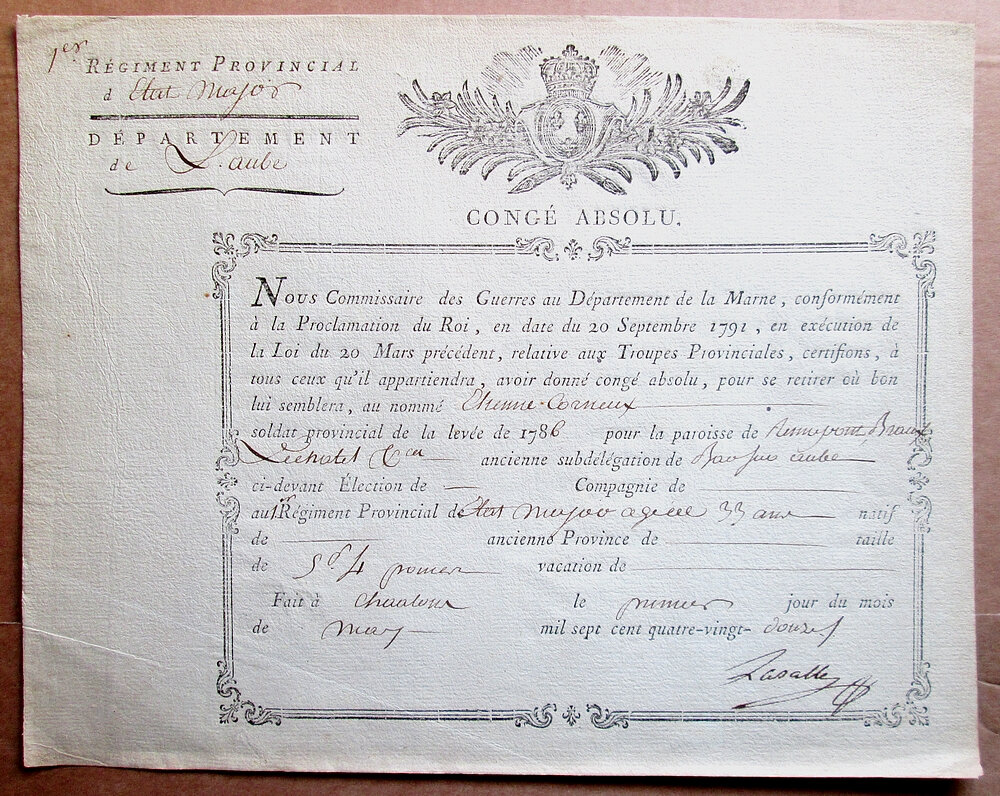 1er
RÉGIMENT PROVINCIAL
d Etat Major
DÉPARTEMENT
de L'aube
CONGÉ ABSOLU.
NOUS Commissaire des Guerres au Département de la Marne, conformément
à la Proclamation du Roi, en date du 20 Septembre 1791, en exécution de
la Loi du 20 Mars précédent, relative aux Troupes Provinciales, certifions, à
tous ceux qu'il appartiendra, avoir donné congé absolu, pour se retirer où bon
lui semblera, au nommé Etienne Corneux
soldat provincial de la levée de 1786 pour la paroisse de
ancienne subdélégation de Bar sur aube
ci-devant Élection de — Compagnie de
au 1er Régiment Provincial de Etat major agé de 33 ans natif
de ancienne Province de taille
de 5 4 vacation de
Fait à Chaalons le premier jour du mois
de may mil sept cent quatre-vingt- douze
Lasalle